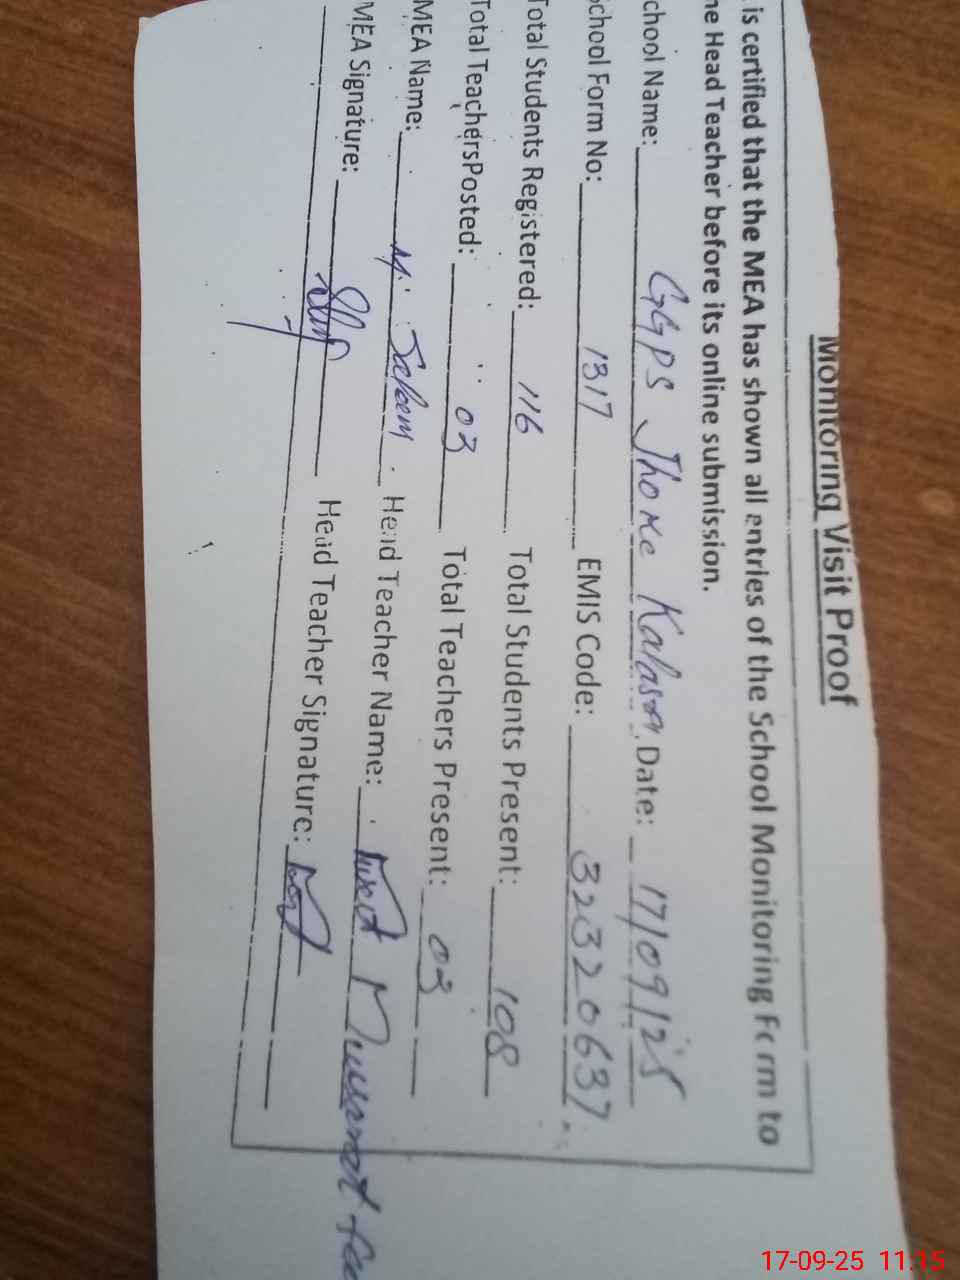 Monitoring Visit Proof
is certified that the MEA has shown all entries of the School Monitoring Form to
he Head Teacher before its online submission.
chool Name: GGPS Jhoke Kalasra Date: 17/09/25
School Form No: 1317 EMIS Code: 32320637
Total Students Registered: 116 Total Students Present: 108
Total TeachersPosted: 03 Total Teachers Present: 03
MEA Name: M. Saleem Head Teacher Name: Musarat
MEA Signature: Head Teacher Signature:
17-09-25 11:15